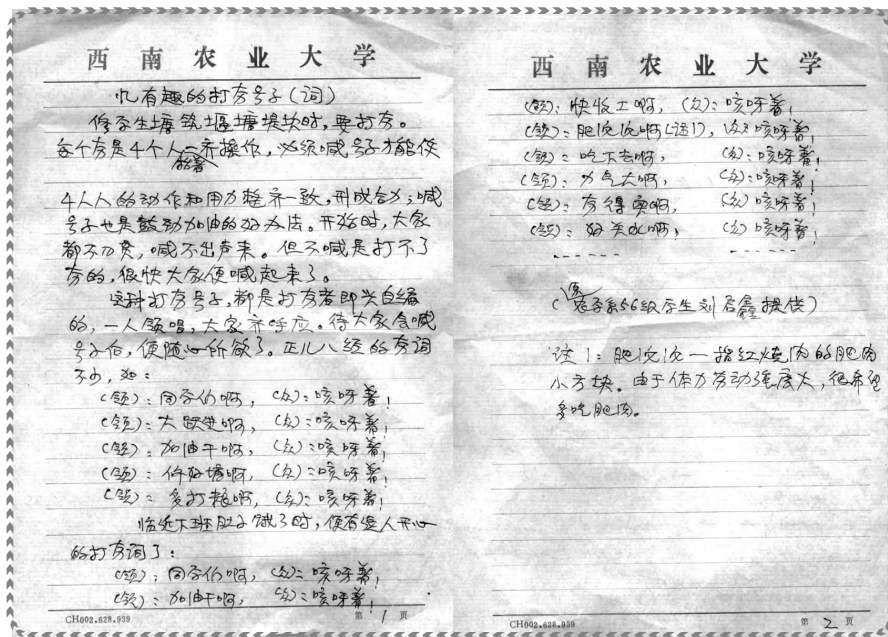 西南农业大学
忆有趣的打夯号子(词)
修学生塘筑堰塘堤坎时，要打夯。
每个夯是4个人一齐操作，必须喊号子才能使
抬着
4人人的动作和用力整齐一致，形成合力；喊
号子也是鼓劲加油的好办法。开始时，大家
都不习惯，喊不出声来。但不喊是打不了
夯的，很快大家便喊起来了。
这种打夯号子，都是打夯者即兴自编
的，一人领唱，大家齐呼应。待大家会喊
号子后，便随心所欲了。正儿八经的夯词
不少，如：
(领)：同学们啊，(众)：咳呀着！
(领)：大跃进啊，(众)：咳呀着！
(领)：加油干啊，(众)：咳呀着！
(领)：修好塘啊，(众)：咳呀着！
(领)：多打粮啊，(众)：咳呀着！
临近下班肚子饿了时，便有逗人开心
的打夯词了：
(领)：同学们啊，(众)：咳呀着！
(领)：加油干啊，(众)：咳呀着！
CH002.628.939 第1页
西南农业大学
(领)：快收工啊，(众)：咳呀着！
(领)：肥沱沱啊(注1)，(众)：咳呀着！
(领)：吃下去啊，(众)：咳呀着！
(领)：力气大啊，(众)：咳呀着！
(领)：夯得实啊，(众)：咳呀着！
(领)：好关水啊，(众)：咳呀着！
(原农学系56级学生刘启鑫提供)
注1：肥沱沱—指红烧肉的肥肉
小方块。由于体力劳动强度大，很希望
多吃肥肉。
CH002.628.939 第2页